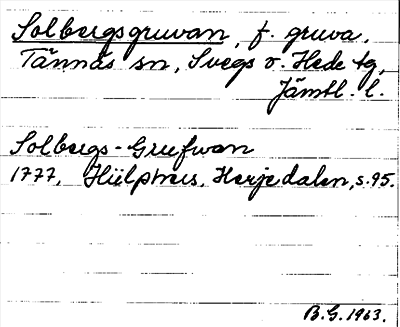 Solbergsgruvan, f. gruva.
Tännäs sn, Svegs o. Hede tg,
Jämtl. l.
Solbergs-Grufwan
1777, Hülphers, Herjedalen, s. 95.
B.G. 1963.